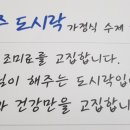 도시락 가정식 수제
조미료를 고집합니다.
이 해주는 도시락입
건강만을 고집합니